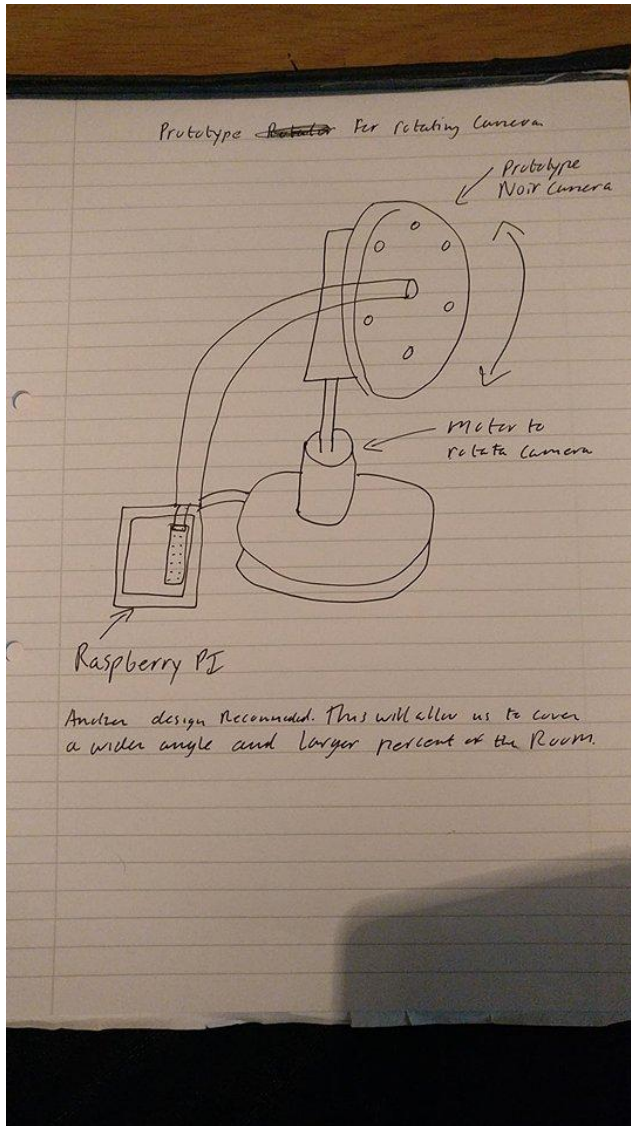 Prototype For rotating Camera
Prototype
Noir Camera
Motor to
rotata camera
Raspberry PI
design Recomended. This will allow us to cover
a wider angle and larger percent of the Room.